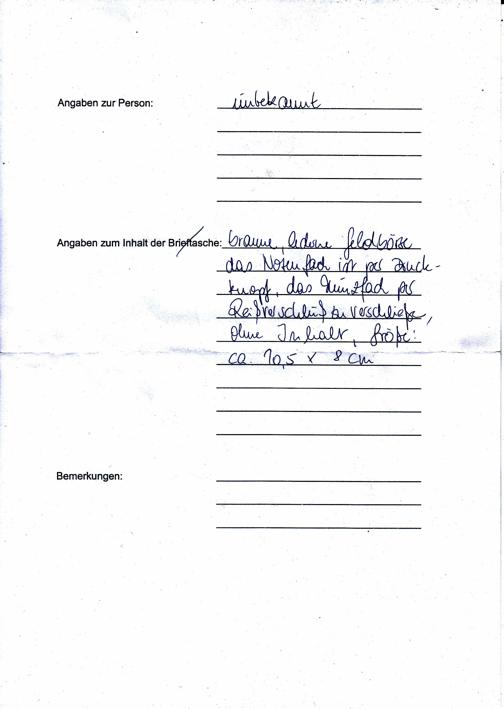 Angaben zur Person: unbekannt
Angaben zum Inhalt der Brieftasche: braune, lederne Geldbörse
das Notenfach ist per Druck-
knopf, das Münzfach per
Reißverschluß zu verschließen,
ohne Inhalt, Größe:
ca. 10,5 x 8 cm
Bemerkungen: